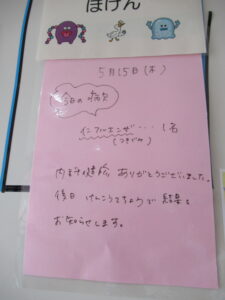 ほけん
5月15日(木)
今日の病欠
インフルエンザ・・・1名
(つきぐみ)
内科健診 ありがとうございました。
後日 けんこうきろくで 結果を
お知らせします。